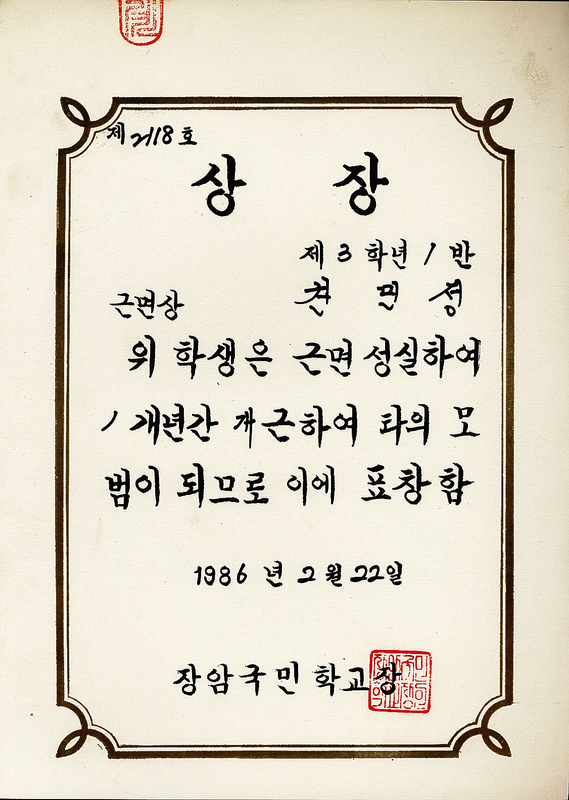 제 2118 호
상 장
제 3 학년 1 반
근면상
민 성
위 학생은 근면 성실하여
1 개년간 개근하여 타의 모
범이 되므로 이에 표창함
1986 년 2 월 22 일
장암국민학교장